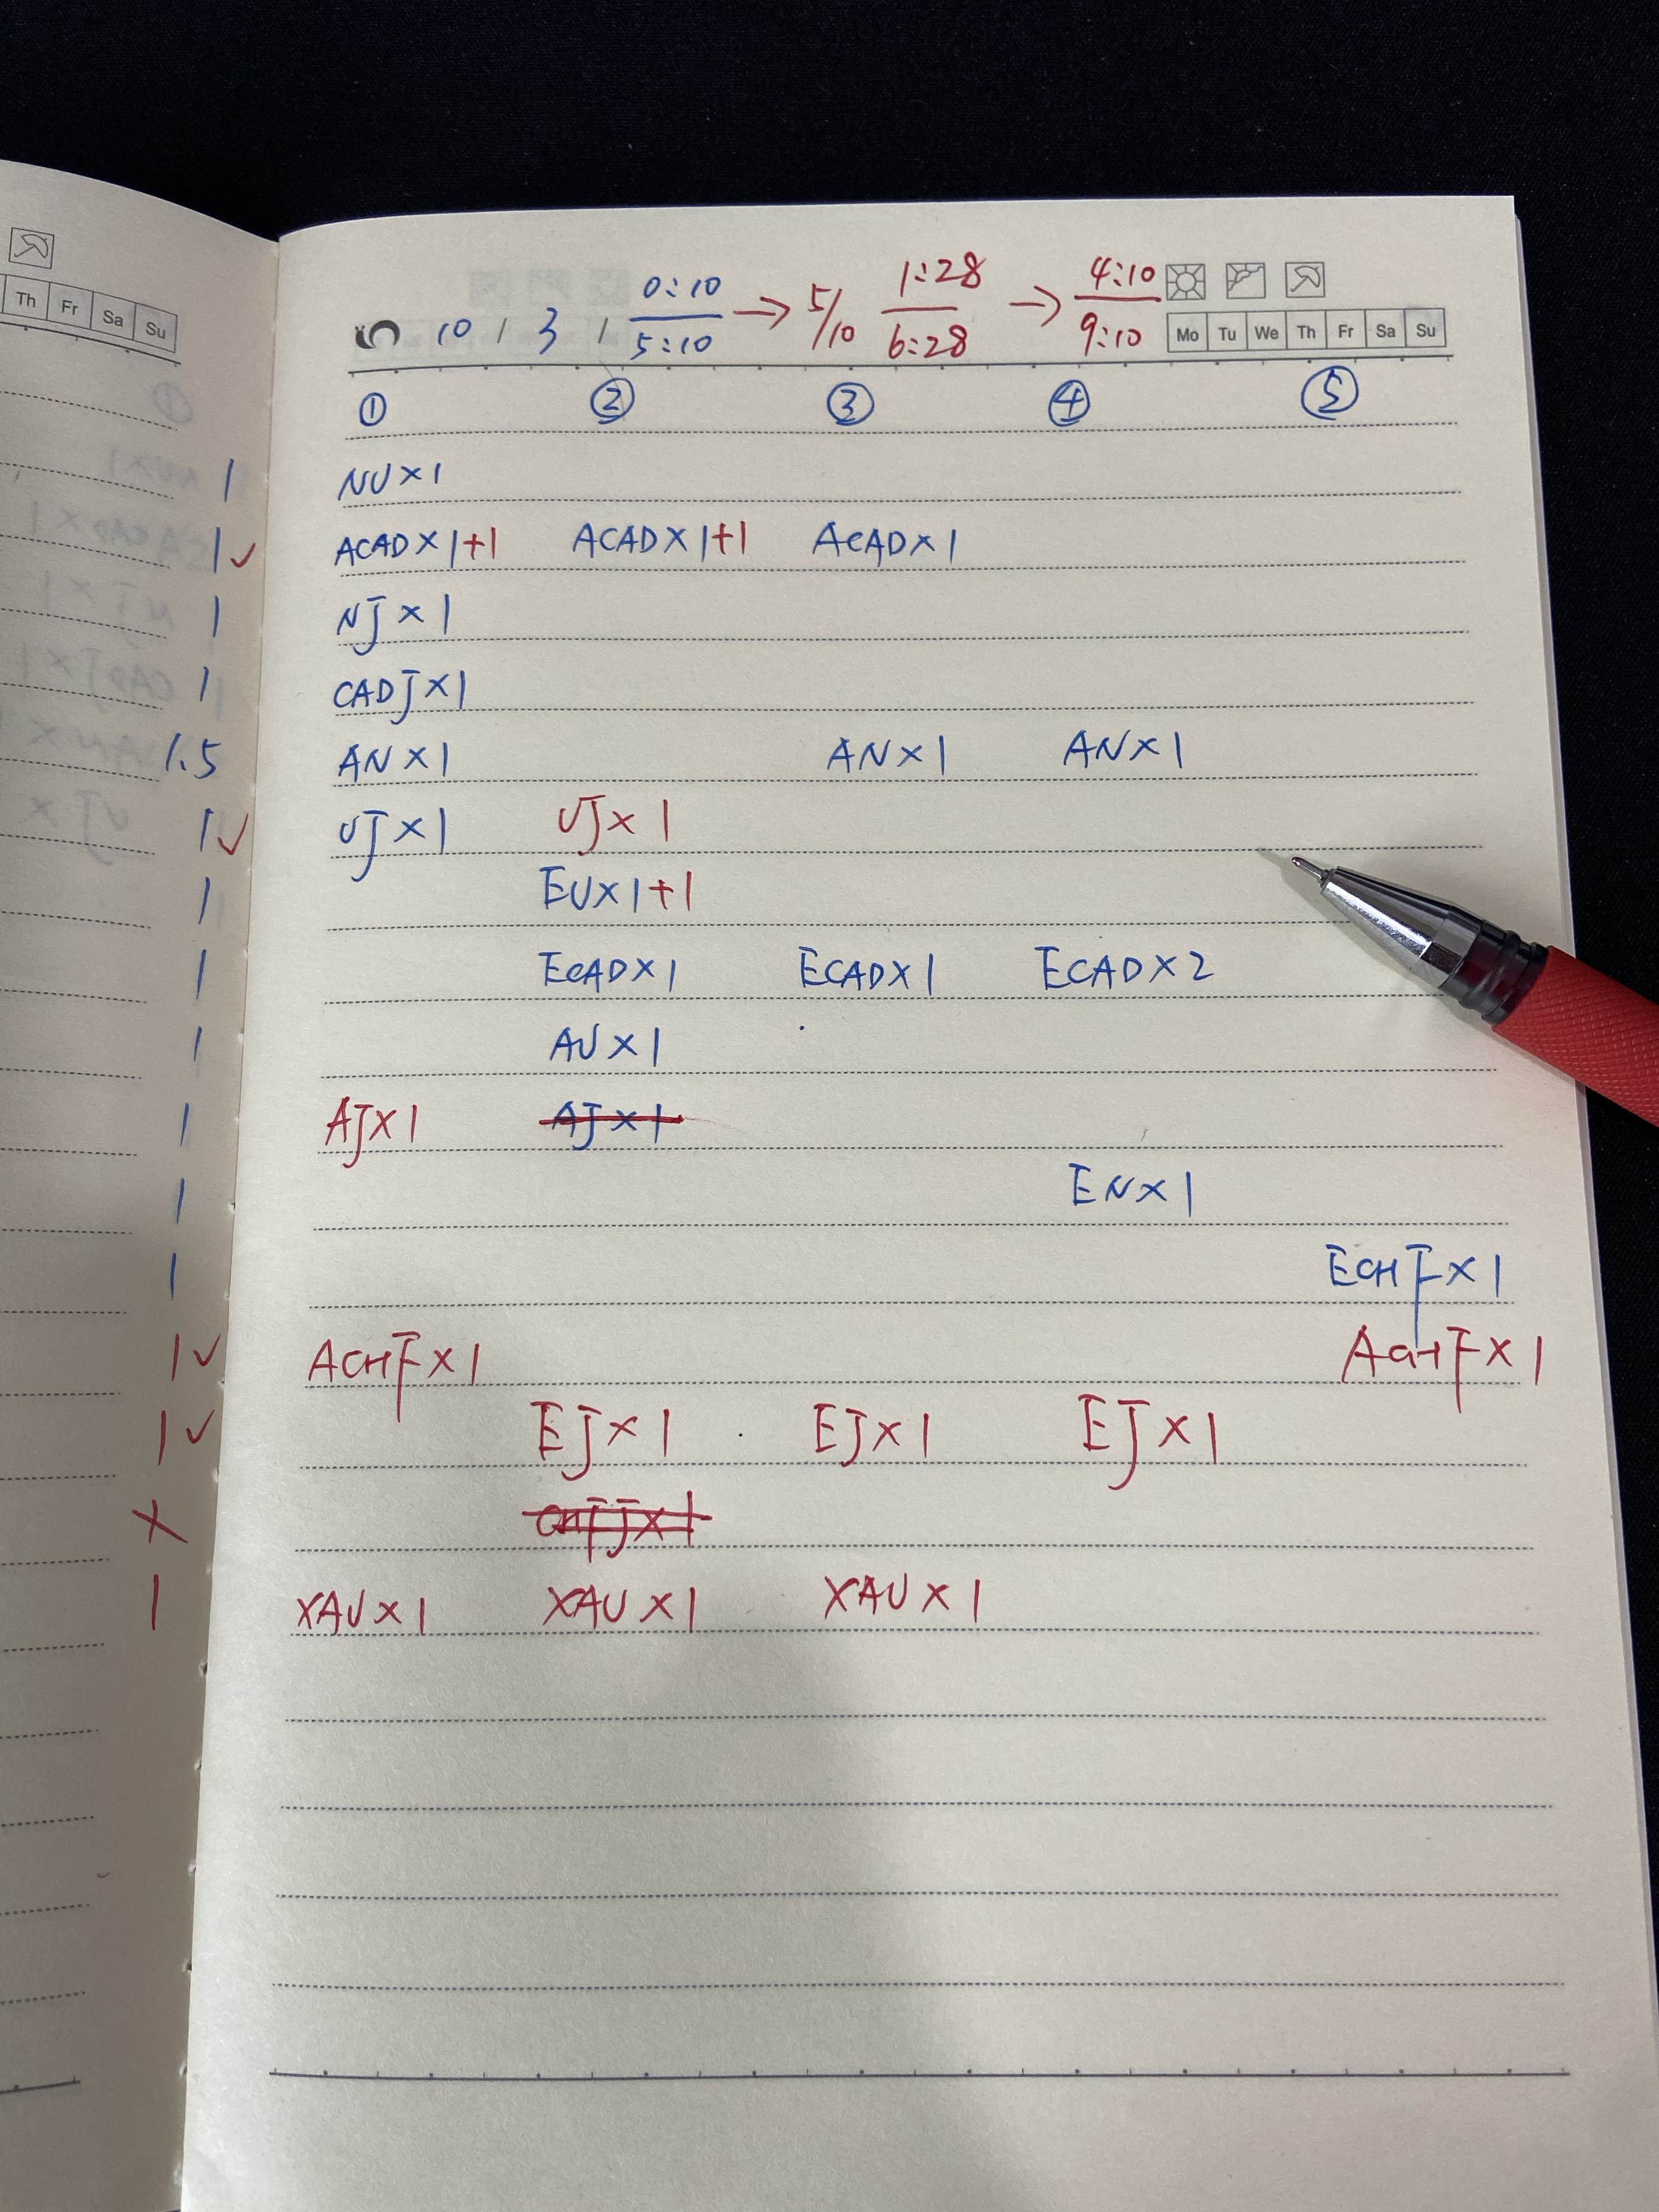 10 / 3 / 0:10 → 5/10 1:28 → 4:10
5:10 6:28 9:10
Mo Tu We Th Fr Sa Su
Th Fr Sa Su
① ② ③ ④ ⑤
1 NU×1
1✓ ACAD×1+1 ACAD×1+1 ACAD×1
1 NJ×1
1 CADJ×1
1.5 AN×1 AN×1 AN×1
1✓ UJ×1 UJ×1
1 EU×1+1
1 ECAD×1 ECAD×1 ECAD×2
1 AU×1
1 AJ×1 AJ×1
1 EN×1
1 ECHF×1
1✓ ACHF×1 ACHF×1
1✓ EJ×1 EJ×1 EJ×1
× CHFJ×1
1 XAU×1 XAU×1 XAU×1